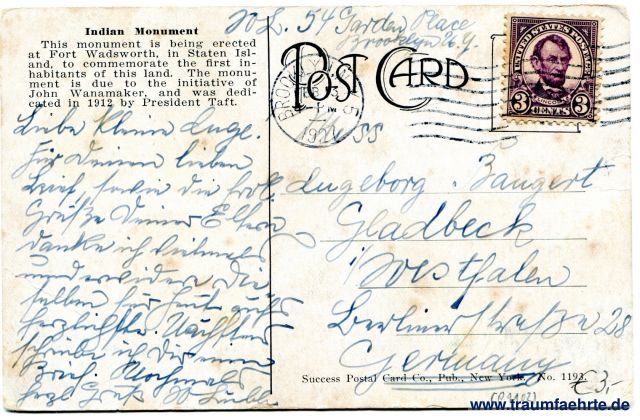 W.L. 54 Garden Place
Brooklyn N.Y.
Indian Monument
This monument is being erected
at Fort Wadsworth, in Staten Isl-
and, to commemorate the first in-
habitants of this land. The monu-
ment is due to the initiative of
John Wanamaker, and was dedi-
cated in 1912 by President Taft.
POST CARD
UNITED STATES POSTAGE
LINCOLN
3 CENTS 3
BROOKLYN
Liebe kleine Inge.
Für Deinen lieben
Brief, sowie die
Grüße Deiner Eltern
danke ich vielmals
und erwidere die
selben für heut aufs
herzlichste. Nächstens
schreibe ich Dir einen
Brief. Nochmals
herzl. Gruß
Ingeborg Bangert
Gladbeck
i/Westfalen
Berliner straße 28
Germany
Success Postal Card Co., Pub., New York. No. 1193.
€ 3,-
www.traumfaehrte.de